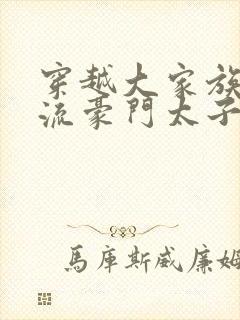 穿越大家族
流豪門太子
馬庫斯威廉姆